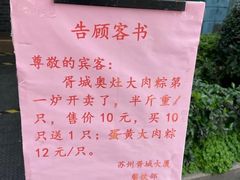 告顾客书
尊敬的宾客：
胥城奥灶大肉粽第
一炉开卖了，半斤重/
只，售价10元，买10
只送1只；蛋黄大肉粽
12元/只。
苏州胥城大厦
餐饮部